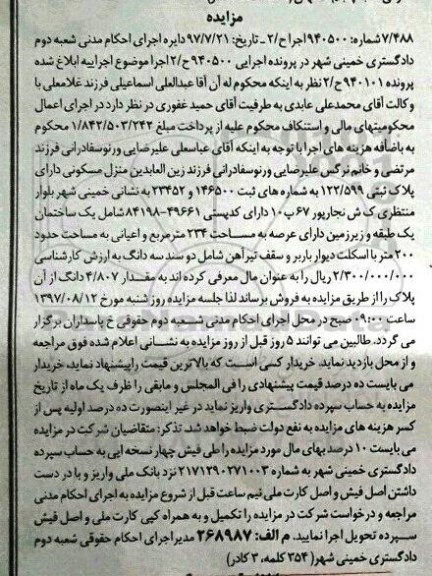 مزایده
۷/۴۸۸ شماره: ۹۴۰۵۰۰ اجرا ح/۲ ـ تاریخ: ۹۷/۷/۲۱ دایره اجرای احکام مدنی شعبه دوم
دادگستری خمینی شهر در پرونده اجرایی ۹۴۰۵۰۰ ح/۲ اجرا موضوع اجراییه ابلاغ شده
پرونده ۹۴۰۱۰۱ ح/۲ نظر به اینکه محکوم له آن آقا عبدالعلی اسماعیلی فرزند غلامعلی با
وکالت آقای محمدعلی عابدی به طرفیت آقای حمید غفوری در نظر دارد در اجرای اعمال
محکومیتهای مالی و استنکاف محکوم علیه از پرداخت مبلغ ۱/۸۴۲/۵۰۳/۲۴۲ محکوم
به باضافه هزینه های اجرا با توجه به اینکه آقای عباسعلی علیرضایی ورنوسفادرانی فرزند
مرتضی و خانم نرگس علیرضایی ورنوسفادرانی فرزند زین العابدین منزل مسکونی دارای
پلاک ثبتی ۱۲۲/۵۹۹ به شماره های ثبت ۱۴۶۵۰۰ و ۲۳۴۵۲ به نشانی خمینی شهر بلوار
منتظری ک ش نجارپور ۶۷ پ ۱۰ دارای کدپستی ۴۹۶۶۱-۸۴۱۹۸ شامل یک ساختمان
یک طبقه و زیرزمین دارای عرصه به مساحت ۲۳۴ مترمربع و اعیانی به مساحت حدود
۲۰۰ متر با اسکلت دیوار باربر و سقف تیرآهن شامل دو سند سه دانگ به ارزش کارشناسی
۲/۳۰۰/۰۰۰/۰۰۰ ریال را به عنوان مال معرفی کرده اند به مقدار ۴/۸۰۷ دانگ از آن
پلاک را از طریق مزایده به فروش برساند لذا جلسه مزایده روز شنبه مورخ ۱۳۹۷/۰۸/۱۲
ساعت ۰۹:۰۰ صبح در محل اجرای احکام مدنی شعبه دوم حقوقی خ پاسداران برگزار
می گردد. طالبین می توانند ۵ روز قبل از روز مزایده به نشانی اعلام شده فوق مراجعه
و از محل بازدید نماید. خریدار کسی است که بالاترین قیمت را پیشنهاد نماید، خریدار
می بایست ده درصد قیمت پیشنهادی را فی المجلس و مابقی را ظرف یک ماه از تاریخ
مزایده به حساب سپرده دادگستری واریز نماید در غیر اینصورت ده درصد اولیه پس از
کسر هزینه های مزایده به نفع دولت ضبط خواهد شد. تذکر: متقاضیان شرکت در مزایده
می بایست ۱۰ درصد بهای مال مورد مزایده را طی فیش چهار نسخه ایی به حساب سپرده
دادگستری خمینی شهر به شماره ۲۱۷۱۲۹۰۲۷۱۰۰۳ نزد بانک ملی واریز و با در دست
داشتن اصل فیش و اصل کارت ملی نیم ساعت قبل از شروع مزایده به اجرای احکام مدنی
مراجعه و درخواست شرکت در مزایده را تکمیل و به همراه کپی کارت ملی و اصل فیش
سپرده تحویل اجرا نمایید. م الف: ۲۶۸۹۸۷ مدیر اجرای احکام حقوقی شعبه دوم
دادگستری خمینی شهر( ۳۵۴ کلمه، ۳ کادر)